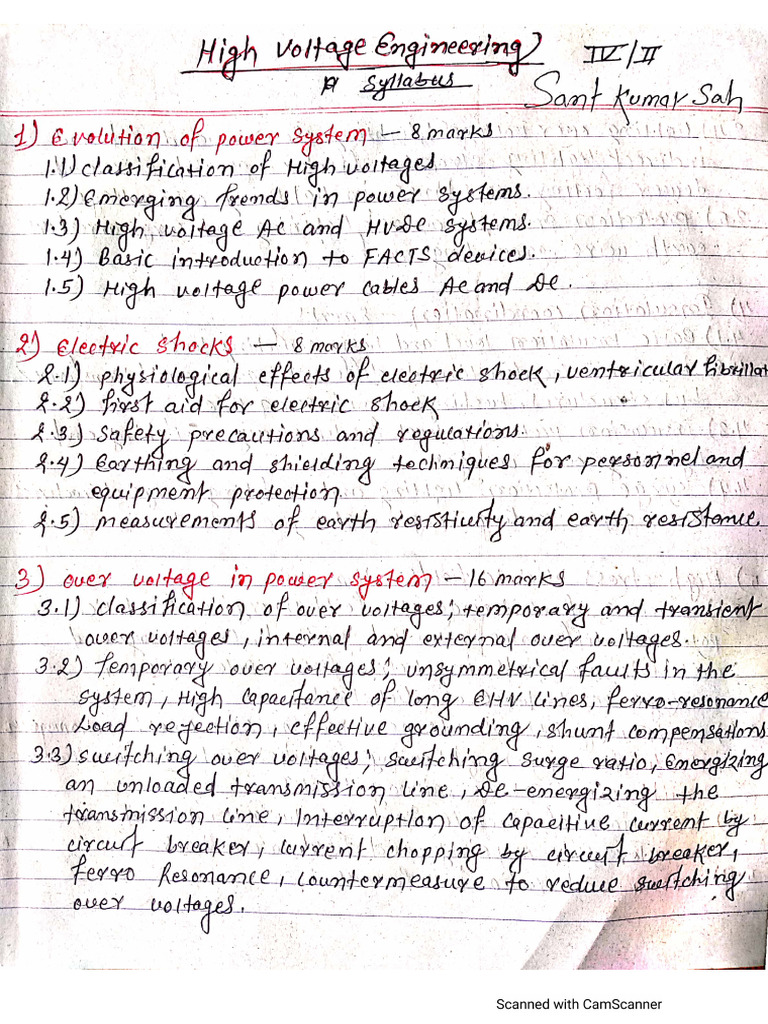 High Voltage Engineering IV/II
Syllabus
Sant Kumar Sah
1) Evolution of power system – 8 marks
1.1) classification of High voltages.
1.2) Emerging trends in power systems.
1.3) High voltage AC and HVDC systems.
1.4) Basic introduction to FACTS devices.
1.5) High voltage power cables AC and DC.
2) Electric shocks – 8 marks
2.1) physiological effects of electric shock, ventricular fibrillat
2.2) first aid for electric shock
2.3) safety precautions and regulations.
2.4) Earthing and shielding techniques for personnel and
equipment protection.
2.5) measurements of earth resistivity and earth resistance.
3) over voltage in power system – 16 marks
3.1) classification of over voltages; temporary and transient
over voltages, internal and external over voltages.
3.2) Temporary over voltages; unsymmetrical faults in the
system, High capacitance of long EHV lines, ferro-resonance
Load rejection, effective grounding, shunt compensations.
3.3) switching over voltages; switching surge ratio, Energizing
an unloaded transmission line, De-energizing the
transmission line, Interruption of capacitive current by
circuit breaker, current chopping by circuit breaker,
ferro Resonance, countermeasure to reduce switching
over voltages.
Scanned with CamScanner